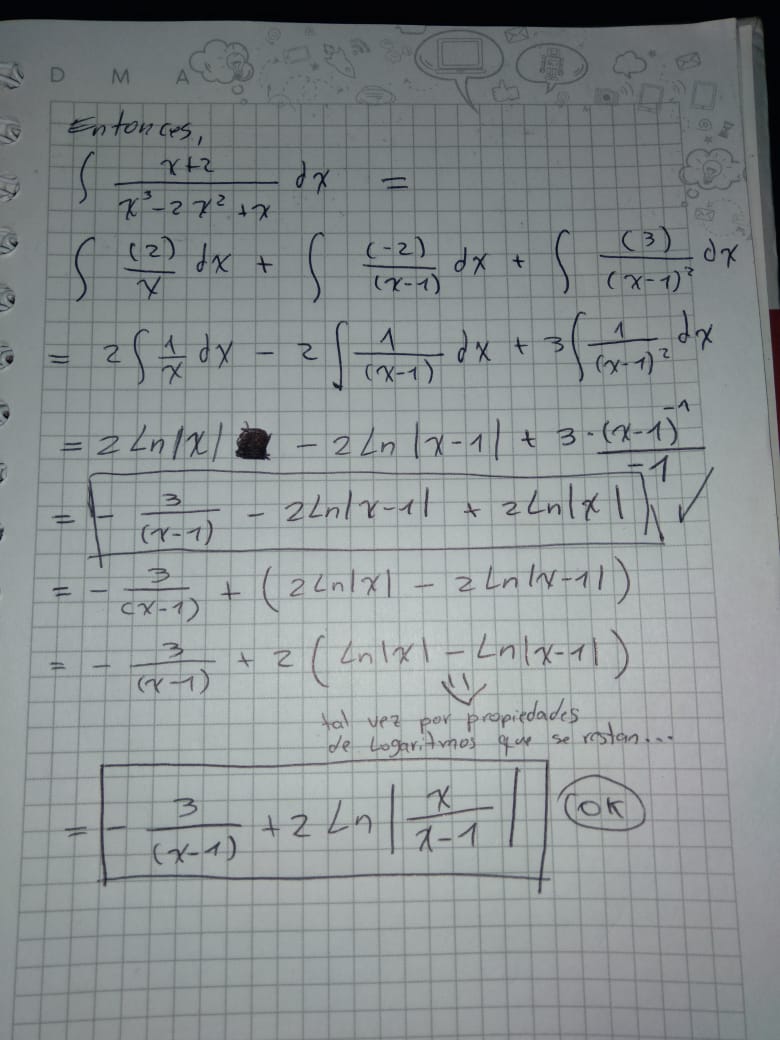 D M A
Entonces,
∫ x+2 / x³-2x²+x dx =
∫ (2)/x dx + ∫ (-2)/(x-1) dx + ∫ (3)/(x-1)² dx
= 2∫ 1/x dx - 2∫ 1/(x-1) dx + 3∫ 1/(x-1)² dx
= 2 Ln|x| - 2 Ln|x-1| + 3·(x-1)⁻¹/-1
= - 3/(x-1) - 2Ln|x-1| + 2Ln|x| ✓
= - 3/(x-1) + (2Ln|x| - 2Ln|x-1|)
= - 3/(x-1) + 2(Ln|x| - Ln|x-1|)
tal vez por propiedades
de Logaritmos que se restan...
= - 3/(x-1) + 2 Ln|x/x-1| OK